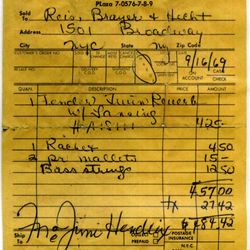 PLaza 7-0576-7-8-9
Sold To Reis, Brayer & Hecht
Address 1501 Broadway
City NYC State NY Zip Code
CUSTOMER'S ORDER NO.
9/16/69
RESALE NO. DELIVERY C.O.D. COLLECTION C.O.D. ON ACCOUNT CASH CHECK
QUAN. DESCRIPTION
1 Fend Twin Reverb
W/ Lansing
425-
1 Racket 4 50
2 pr mallets 15 -
Bass strings 12 50
457 00
TX 27 42
484 42
Ship To
Jimi Hendrix
COLLECT PREPAID POSTAGE INSURANCE
N.Y.C.